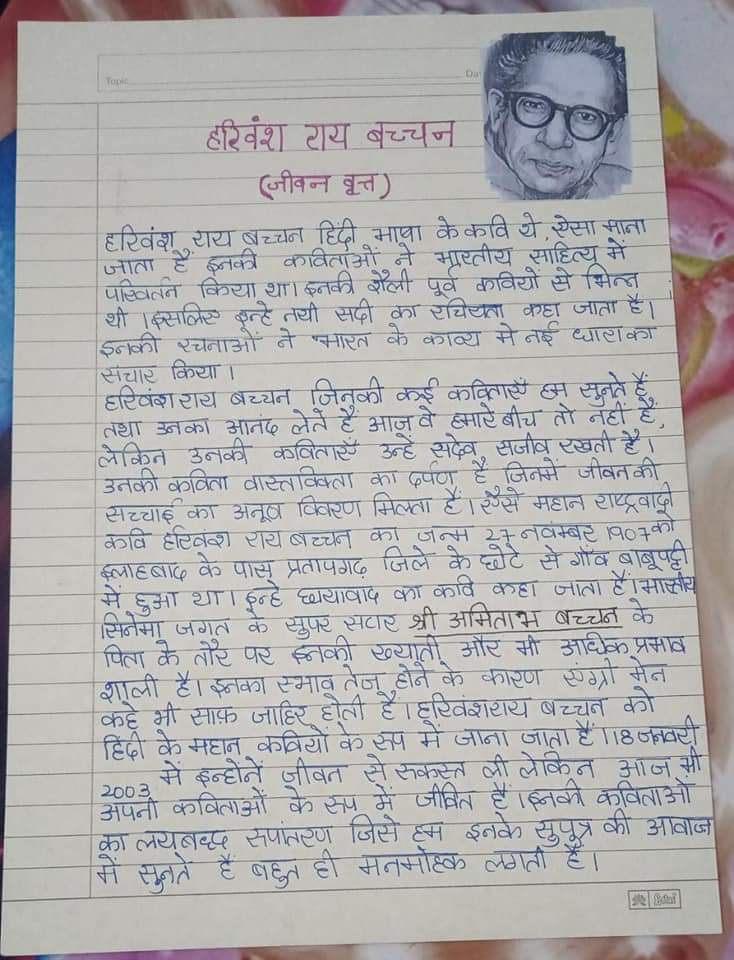 Topic
Da
हरिवंश राय बच्चन
(जीवन वृत्त)
हरिवंश राय बच्चन हिंदी भाषा के कवि थे, ऐसा माना
जाता है इनकी कविताओं ने भारतीय साहित्य में
परिवर्तन किया था। इनकी शैली पूर्व कवियों से भिन्न
थी। इसलिए इन्हे नयी सदी का रचियता कहा जाता है।
इनकी रचनाओं ने भारत के काव्य मे नई धारा का
संचार किया।
हरिवंश राय बच्चन जिनकी कई कविताएँ हम सुनते हैं
तथा उनका आनंद लेते हैं आज वे हमारे बीच तो नहीं हैं,
लेकिन उनकी कविताएँ उन्हे सदैव सजीव रखती है।
उनकी कविता वास्तविक्ता का दर्पण है जिनमें जीवन की
सच्चाई का अनूव विवरण मिलता है। ऐसे महान राष्ट्रवादी
कवि हरिवंश राय बच्चन का जन्म 27 नवम्बर 1907 को
इलाहबाद के पास प्रतापगढ़ जिले के छोटे से गाँव बाबूपट्टी
में हुआ था। इन्हे छायावाद का कवि कहा जाता है। भारतीय
सिनेमा जगत के सुपर सटार श्री अमिताभ बच्चन के
पिता के तौर पर इनकी ख्याती और भी अधिक प्रभाव
शाली है। इनका स्भाव तेज होने के कारण एंग्री मेन
कहे भी साफ़ जाहिर होती है। हरिवंशराय बच्चन को
हिंदी के महान कवियों के रूप में जाना जाता है। 18 जनवरी
2003 में इन्होनें जीवन से रुकस्त ली लेकिन आज भी
अपनी कविताओं के रूप में जीवित हैं। इनकी कविताओं
का लयबध्द रूपांतरण जिसे हम इनके सुपुत्र की आवाज
में सुनते हैं बहुत ही मनमोहक लगती है।